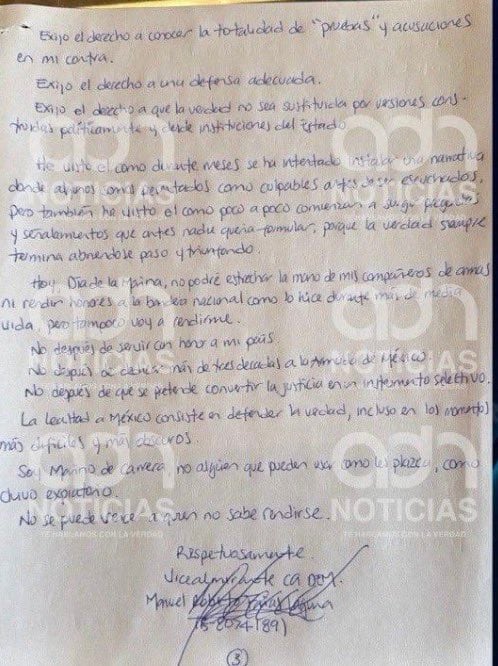 Exijo el derecho a conocer la totalidad de "pruebas" y acusaciones
en mi contra.
Exijo el derecho a una defensa adecuada.
Exijo el derecho a que la verdad no sea sustituida por versiones cons-
truidas políticamente y desde instituciones del Estado
He visto el como durante meses se ha intentado instalar una narrativa
donde algunos somos presentados como culpables antes de ser escuchados,
pero también he visto el como poco a poco comienzan a surgir preguntas
y señalamientos que antes nadie quería formular, porque la verdad siempre
termina abriéndose paso y triunfando.
Hoy, Día de la Marina, no podré estrechar la mano de mis compañeros de armas
ni rendir honores a la bandera nacional como lo hice durante más de media
vida, pero tampoco voy a rendirme.
No después de servir con honor a mi país.
No después de dedicar más de tres decadas a la Armada de México.
No después de que se pretende convertir la justicia en un instrumento selectivo.
La lealtad a México consiste en defender la verdad, incluso en los momentos
más difíciles y más obscuros.
Soy Marino de carrera, no alguien que pueden usar como les plazca, como
chivo expiatorio.
No se puede vencer a quien no sabe rendirse.
Respetuosamente.
Vicealmirante CG DEM.
Manuel Roberto Farías Laguna
(B-8024189)
3
adn
NOTICIAS
TE HABLAMOS CON LA VERDAD